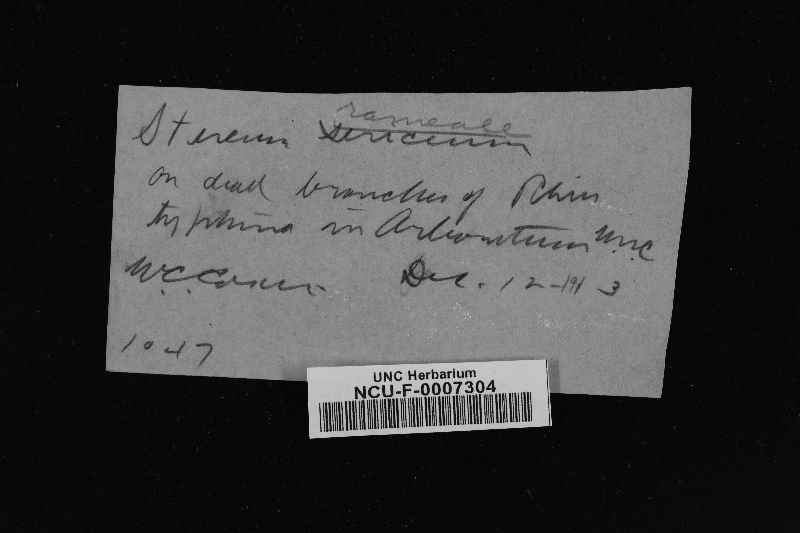 rameale
Stereum sericeum
on dead branches of Rhus
typhina in Arboretum U.N.C
W.C. Coker Dec. 12-1913
1047
UNC Herbarium
NCU-F-0007304